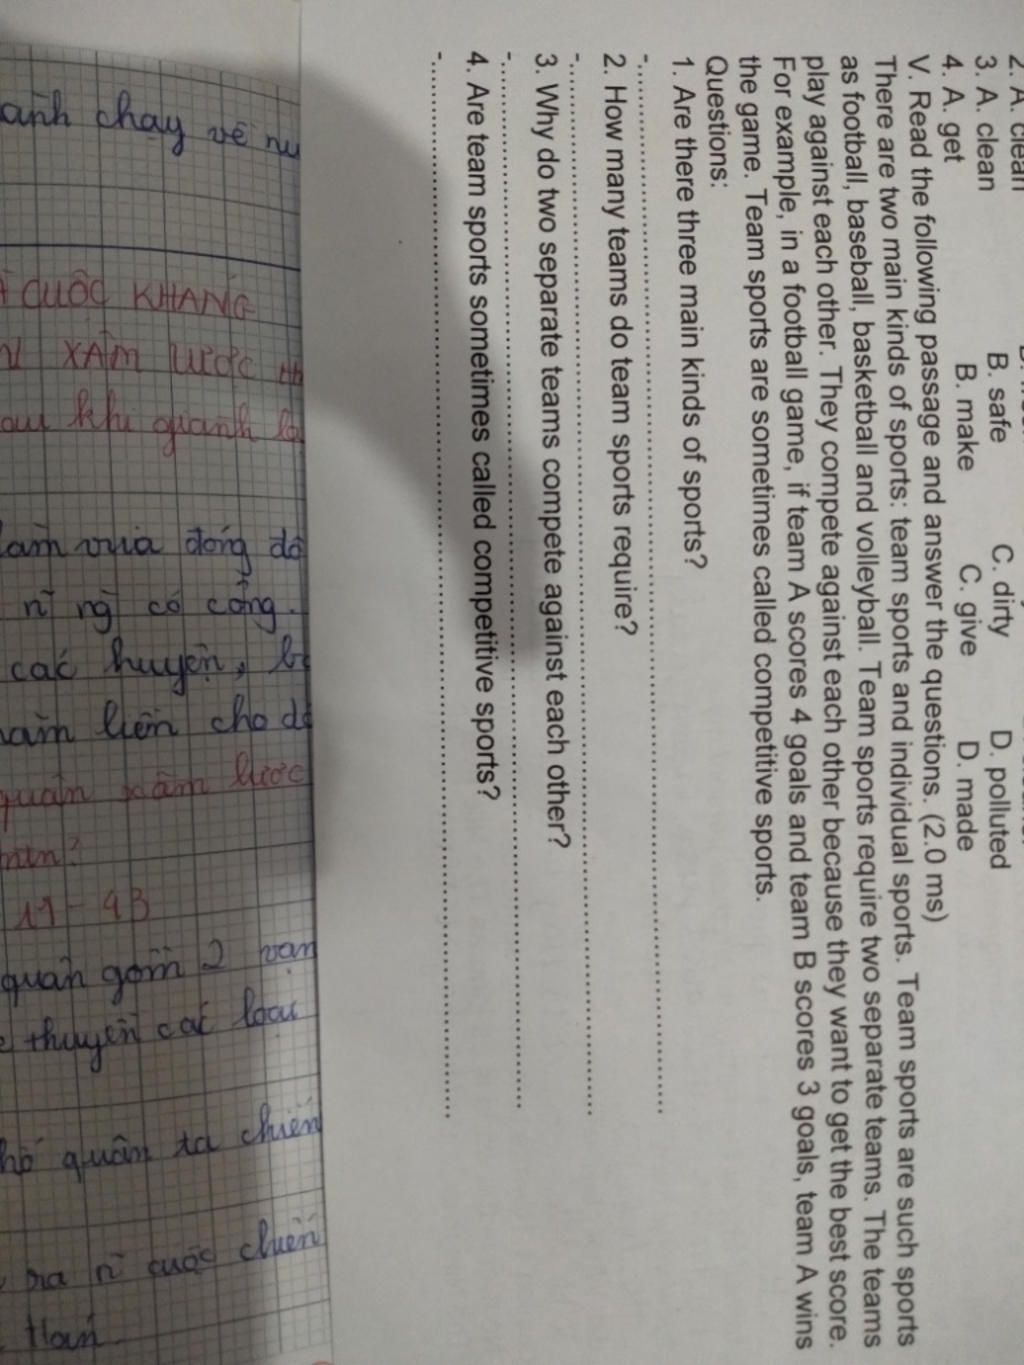 2. A. clean
3. A. clean B. safe C. dirty D. polluted
4. A. get B. make C. give D. made
V. Read the following passage and answer the questions. (2.0 ms)
There are two main kinds of sports: team sports and individual sports. Team sports are such sports
as football, baseball, basketball and volleyball. Team sports require two separate teams. The teams
play against each other. They compete against each other because they want to get the best score.
For example, in a football game, if team A scores 4 goals and team B scores 3 goals, team A wins
the game. Team sports are sometimes called competitive sports.
Questions:
1. Are there three main kinds of sports?
-....................................................................................
2. How many teams do team sports require?
-....................................................................................
3. Why do two separate teams compete against each other?
-....................................................................................
4. Are team sports sometimes called competitive sports?
-....................................................................................
chạy về
CUỘC KHÁNG
XÂM LƯỢC
khi giành
vừa đóng
có công.
các huyện,
liên cho
quân xâm lược
11 - 43
quân gồm 2 vạn
thuyền các loại
quân ta chiến
ra cuộc chiến
Hán